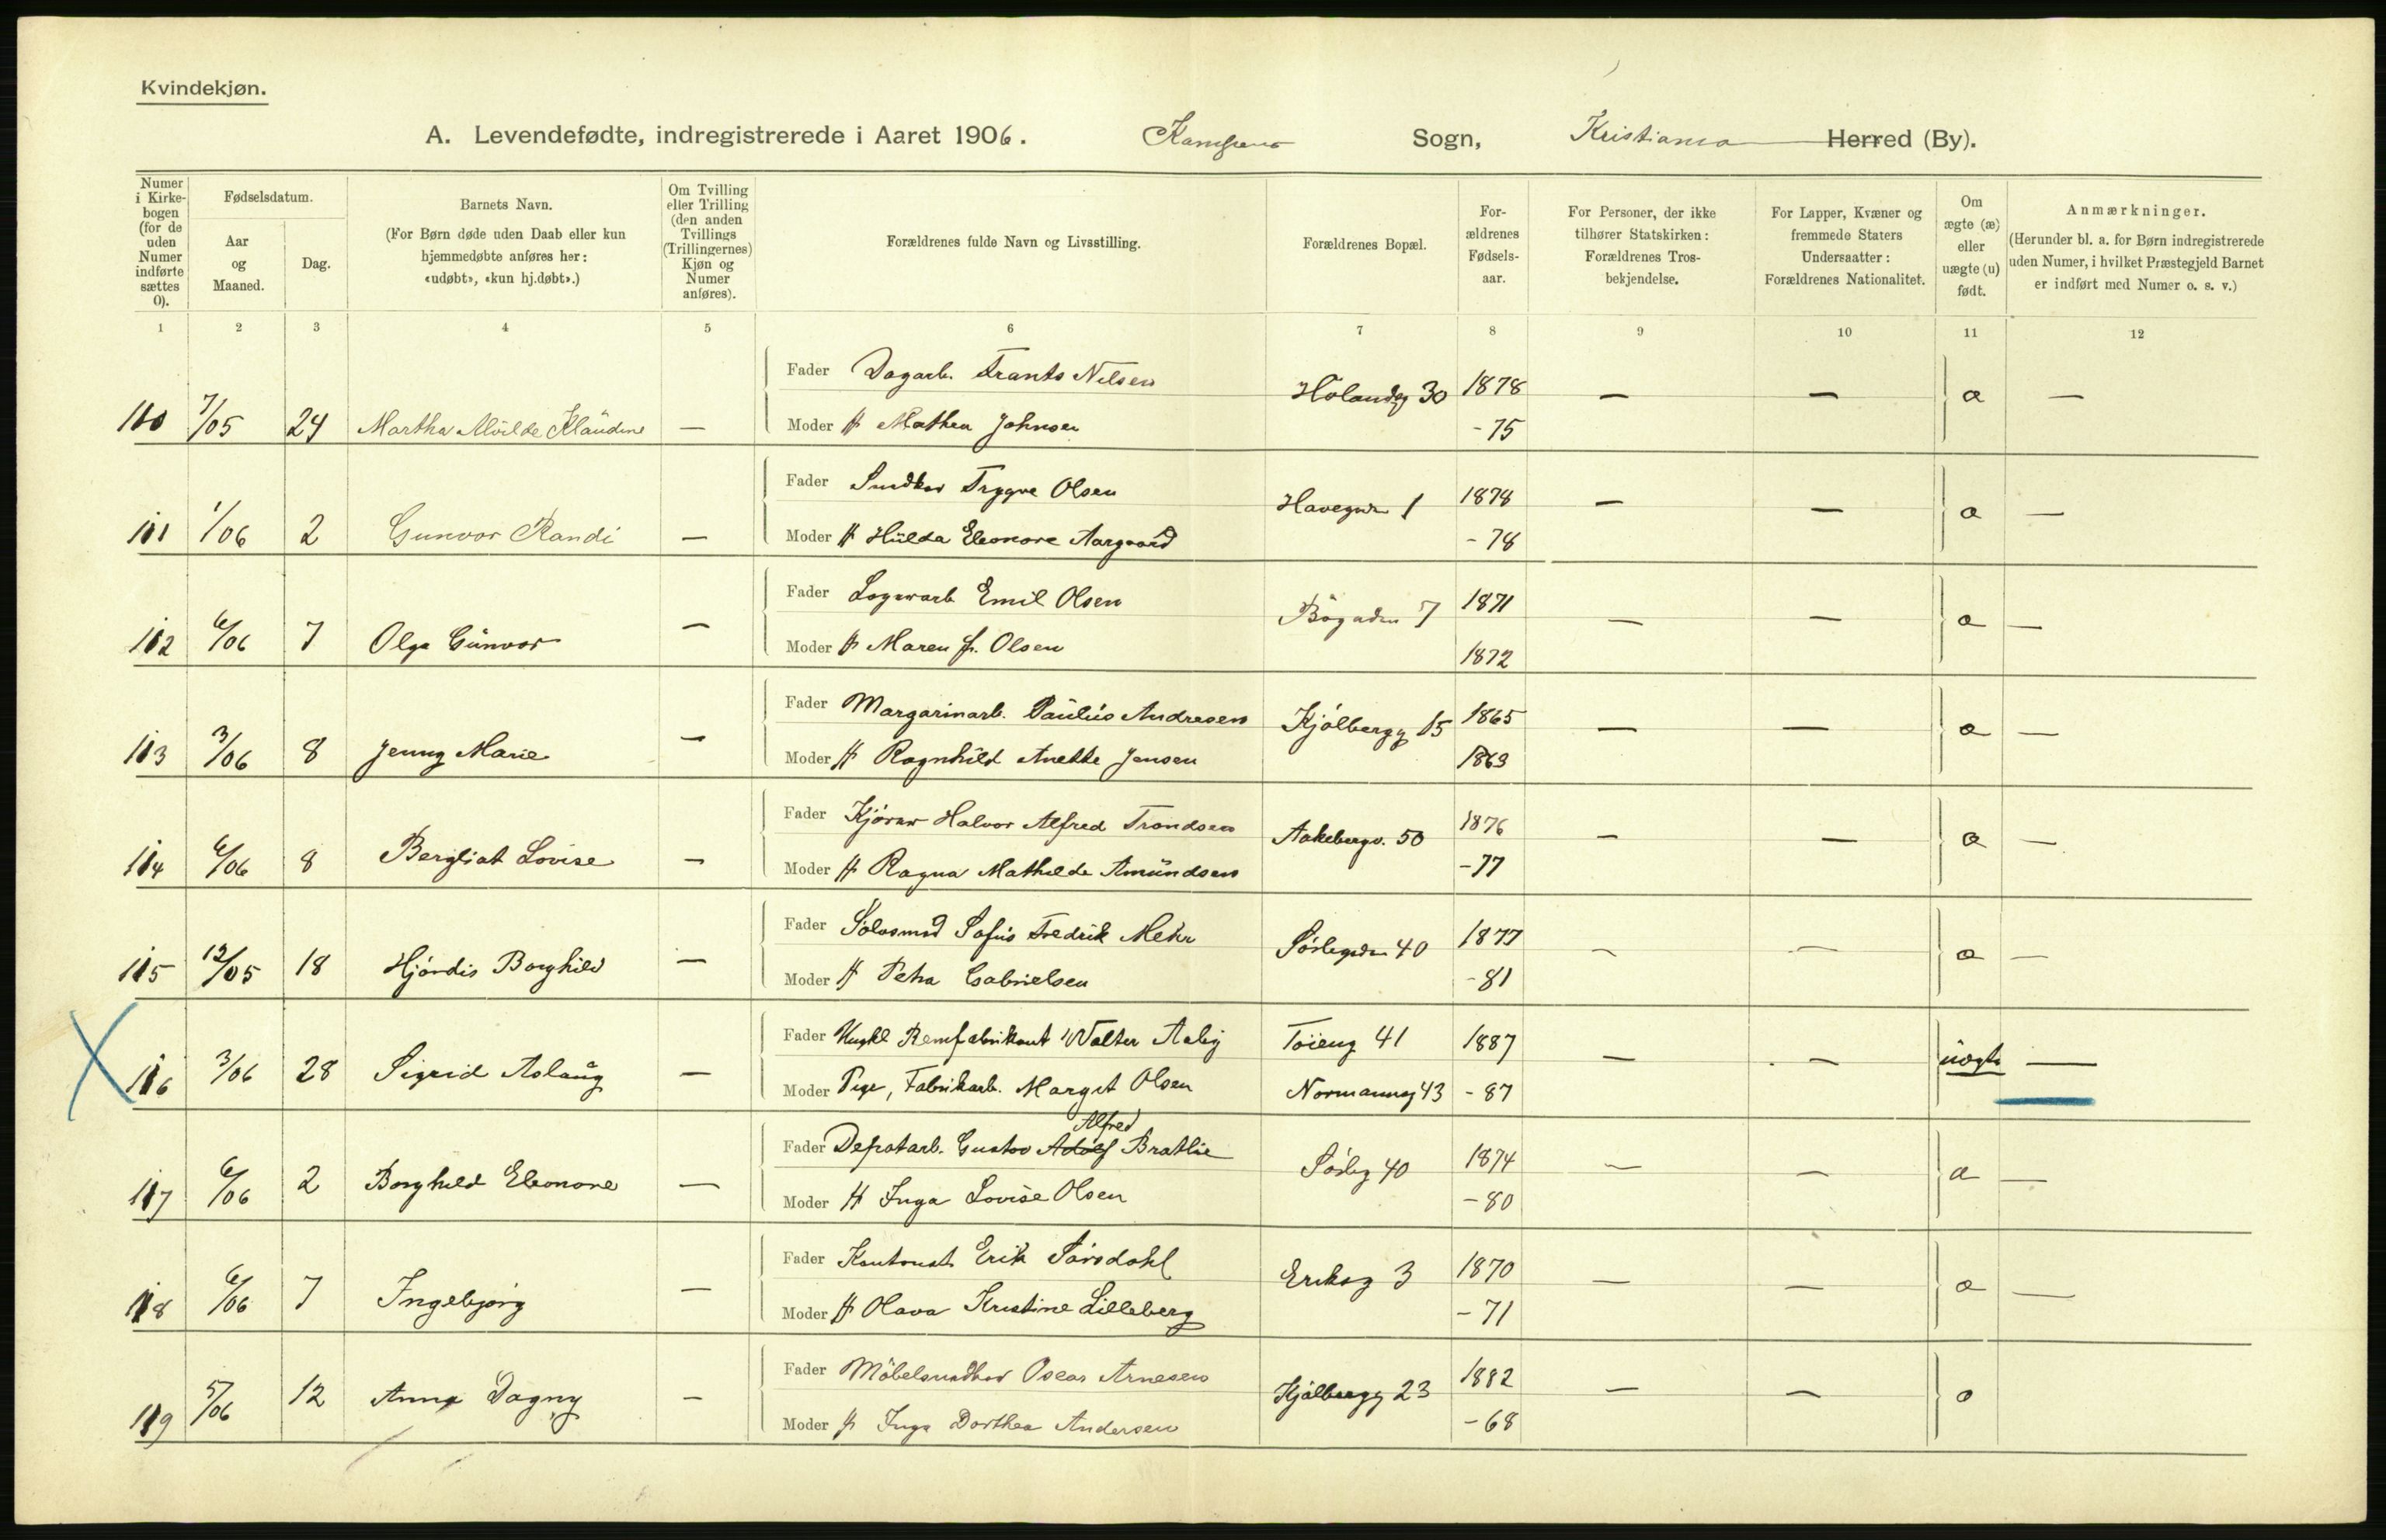 Kvindekjøn.
A. Levendefødte, indregistrerede i Aaret 1906. Kampens Sogn, Kristiania Herred (By).
Numer i Kirkebogen (for de uden Numer indførte sættes 0).
Fødselsdatum.
Aar og Maaned.
Dag.
Barnets Navn.
(For Børn døde uden Daab eller kun hjemmedøbte anføres her: «udøbt», «kun hj.døbt».)
Om Tvilling eller Trilling (den anden Tvillings (Trillingernes) Kjøn og Numer anføres).
Forældrenes fulde Navn og Livsstilling.
Forældrenes Bopæl.
Forældrenes Fødselsaar.
For Personer, der ikke tilhører Statskirken: Forældrenes Trosbekjendelse.
For Lapper, Kvæner og fremmede Staters Undersaatter: Forældrenes Nationalitet.
Om ægte (æ) eller uægte (u) født.
Anmærkninger.
(Herunder bl. a. for Børn indregistrerede uden Numer, i hvilket Præstegjeld Barnet er indført med Numer o. s. v.)
1 2 3 4 5 6 7 8 9 10 11 12
Fader Dagarb. Frants Nilsen Hølandsg 30 1878 — — æ —
110 7/05 24 Martha Alvilde Klaudine — Moder H Mathea Johnsen - 75
Fader Snedker Trygve Olsen Havegaden 1 1878 — — æ —
111 1/06 2 Gunvor Randi — Moder H Hilda Eleonore Aargaard - 78
Fader Lagerarb Emil Olsen Bøgaden 7 1871 — — æ —
112 6/06 7 Olga Gunvor — Moder H Maren f. Olsen 1872
Fader Margarinarb. Paulus Andresen Kjølbergg 15 1865 — — æ —
113 3/06 8 Jenny Marie — Moder H Ragnhild Anette Jensen 1863
Fader Kjører Halvor Alfred Trondsen Aakebergv. 50 1876 — — æ —
114 6/06 8 Bergliot Lovise — Moder H Ragna Mathilde Amundsen - 77
Fader Sølvsmed Sofus Fredrik Mehr Sørligaden 40 1877 — — æ —
115 12/05 18 Hjørdis Borghild — Moder H Petra Gabrielsen - 81
Fader Ungkl Remfabrikant Walter Aaby Tøieng 41 1887 — — uægte —
116 3/06 28 Sigrid Aslaug — Moder Pige, Fabrikarb. Margit Olsen Normannsg 43 - 87
Alfred
Fader Depotarb. Gustav Adolf Brathlie Sørlig 40 1874 — — æ —
117 6/06 2 Borghild Eleonore — Moder H Inga Lovise Olsen - 80
Fader Kontorist Erik Sørsdahl Eriksg 3 1870 — — æ —
118 6/06 7 Ingebjørg — Moder H Olava Kristine Lilleberg - 71
Fader Møbelsnedker Oscar Arnesen Kjølbergg 23 1882 — — æ
119 5/06 12 Anna Dagny — Moder H Inga Dorthea Andersen - 68